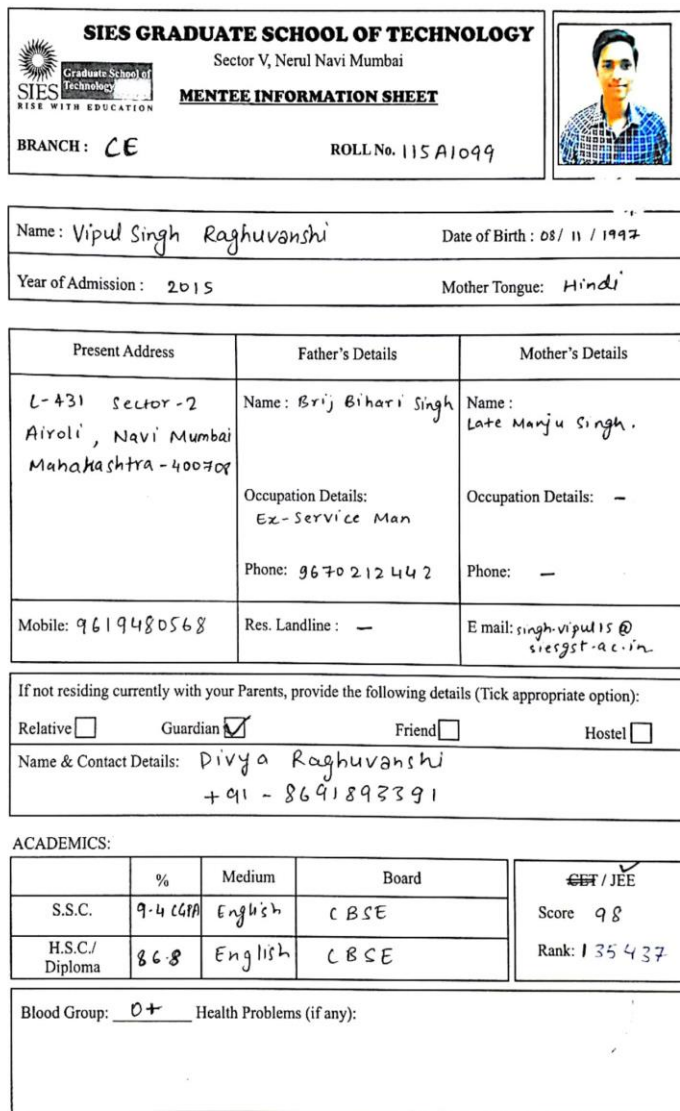 SIES GRADUATE SCHOOL OF TECHNOLOGY
Sector V, Nerul Navi Mumbai
Graduate School of
Technology
SIES
RISE WITH EDUCATION
MENTEE INFORMATION SHEET
BRANCH : CE
ROLL No. 115A1099
Name : Vipul Singh Raghuvanshi
Date of Birth : 08/ 11 / 1997
Year of Admission : 2015
Mother Tongue: Hindi
Present Address
Father's Details
Mother's Details
L-431 Sector-2
Airoli, Navi Mumbai
Maharashtra-400708
Name : Brij Bihari Singh
Occupation Details:
Ex-Service Man
Phone: 9670212442
Name :
Late Manju Singh.
Occupation Details: –
Phone: –
Mobile: 9619480568
Res. Landline : –
E mail: singh.vipul15@
siesgst.ac.in
If not residing currently with your Parents, provide the following details (Tick appropriate option):
Relative Guardian ✓ Friend Hostel
Name & Contact Details: Divya Raghuvanshi
+91 - 8691893391
ACADEMICS:
% Medium Board
S.S.C. 9.4 CGPA English CBSE
H.S.C./
Diploma 86.8 English CBSE
CET / JEE ✓
Score 98
Rank: 135437
Blood Group: O+ Health Problems (if any):